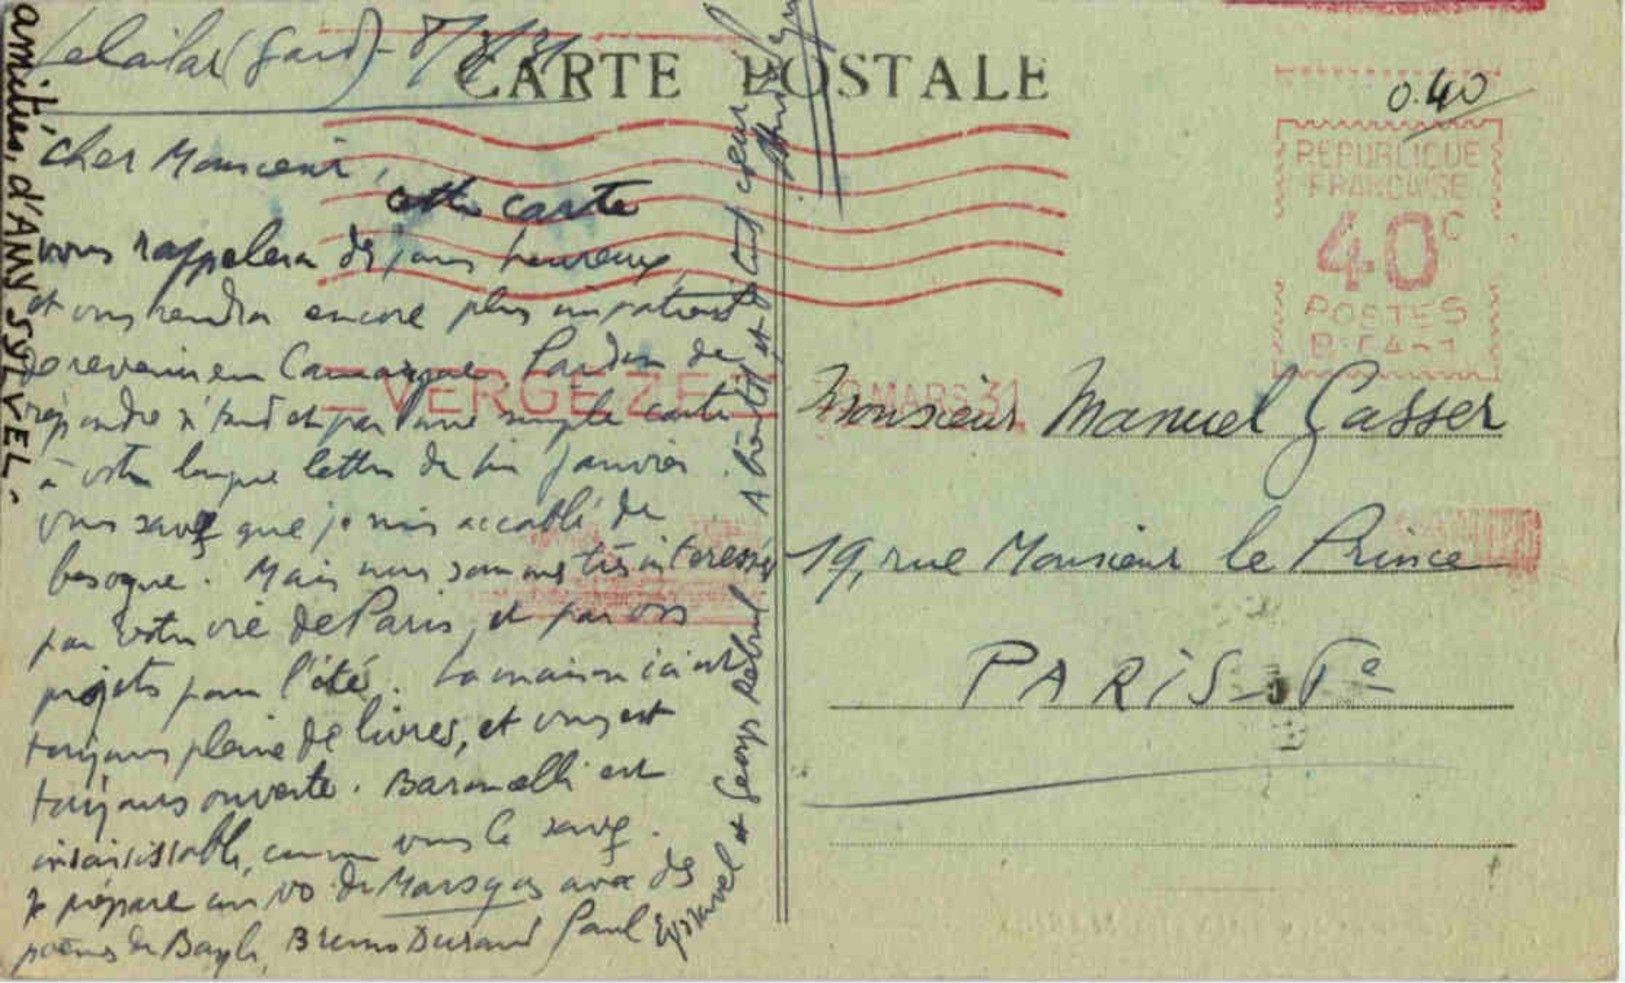 Le Cailar (Gard) - 8/3/31
CARTE POSTALE
0.40
REPUBLIQUE
FRANCAISE
40c
POSTES
VERGEZE
MARS 31
Cher Monsieur,
cette carte
vous rappelera des jours heureux,
et vous rendra encore plus impatient
de revenir en Camargue. Pardon de
répondre si tard et par une simple carte
à votre longue lettre de fin janvier.
Vous savez que je suis accablé de
besogne. Mais nous sommes très interessés
par votre vie de Paris, et par vos
projets pour l'été. La maison ici est
toujours pleine de livres, et vous est
toujours ouverte. Baroncelli est
insaisissable, comme vous le savez.
Je prépare un no de Marsyas avec des
poèmes de Bayle, Bruno Durand Paul
Eyssavel et Georges Reboul
A bientôt et de tout coeur
amitiés, d'AMY SYLVEL.
Monsieur Manuel Gasser
19, rue Monsieur le Prince
PARIS - 6e